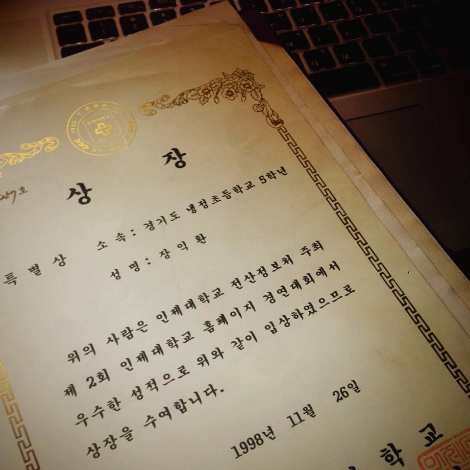 호
상 장
특별상 소속: 경기도 냉정초등학교 5학년
성명: 장익환
위의 사람은 인제대학교 전산정보처 주최
제 2회 인제대학교 홈페이지 경연대회에서
우수한 성적으로 위와 같이 입상하였으므로
상장을 수여합니다.
1998년 11월 26일
학 교